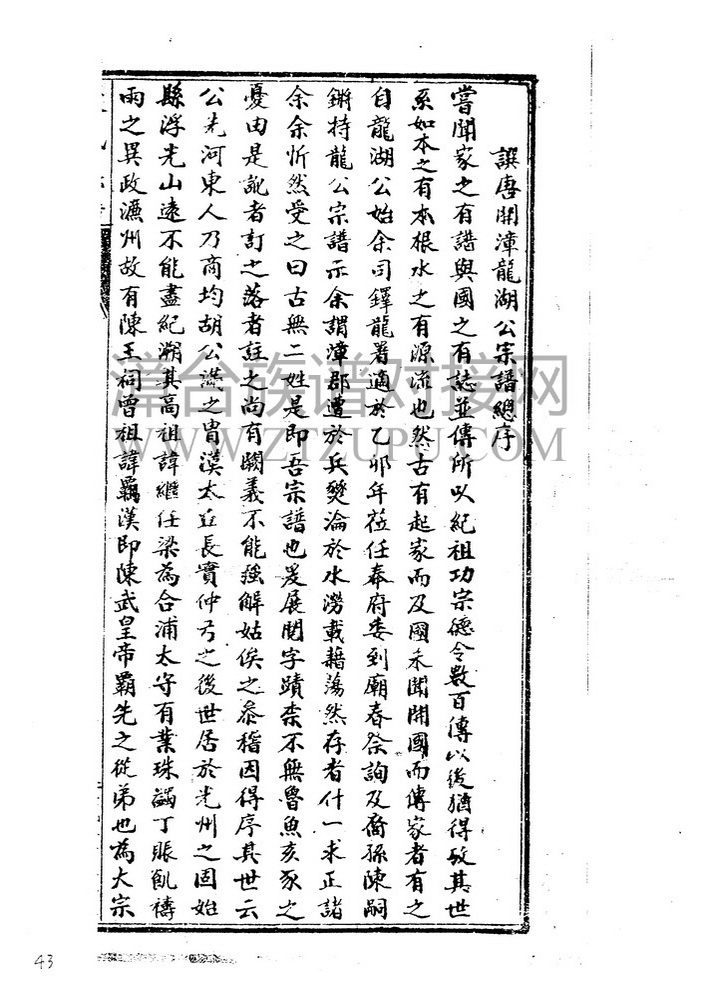 譔唐開漳龍湖公宗譜總序
嘗聞家之有譜與國之有誌並傳所以紀祖功宗德令數百傳以後猶得攷其世
系如木之有本根水之有源流也然古有起家而及國未聞開國而傳家者有之
自龍湖公始余司鐸龍署適於乙卯年蒞任奉府委到廟春祭詢及裔孫陳嗣
鏘持龍公宗譜示余謂漳郡遭於兵燹淪於水澇載籍蕩然存者什一求正諸
余余忻然受之曰古無二姓是即吾宗譜也爰展閱字蹟柰不無魯魚亥豕之
憂由是訛者訂之落者註之尚有闕義不能強解姑俟之叅稽因得序其世云
公先河東人乃商均胡公滿之胄漢太丘長實仲弓之後世居於光州之固始
縣浮光山遠不能盡紀溯其高祖諱繼任梁為合浦太守有業珠蠲丁賬飢禱
雨之異政濂州故有陳王祠曾祖諱霸漢即陳武皇帝霸先之從弟也為大宗
漳台族谱对接网
WWW.ZTZUPU.COM
43